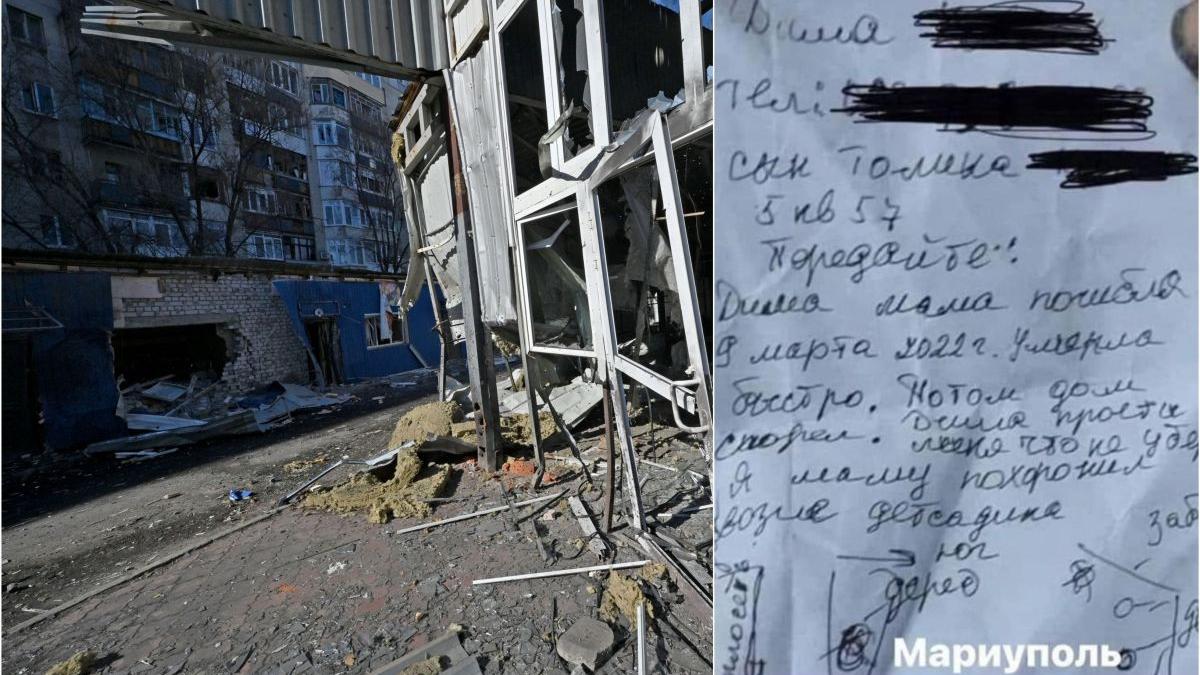 Дима
тел:
сын Толика
5 кв 57
Передайте!
Дима мама погибла
9 марта 2022 г. Умерла
быстро. Потом дом
сгорел. Дима прости
меня что не убе
Я маму похоронил
возле детсадика
юг
дерев
заб
Мариуполь